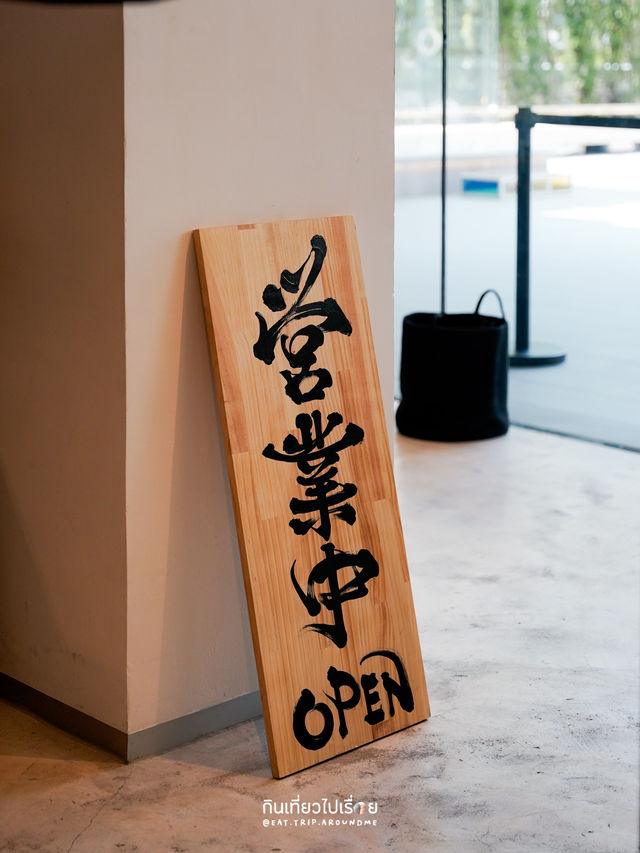 営業中
OPEN
กินเที่ยวไปเรื่อย
@EAT.TRIP.AROUNDME